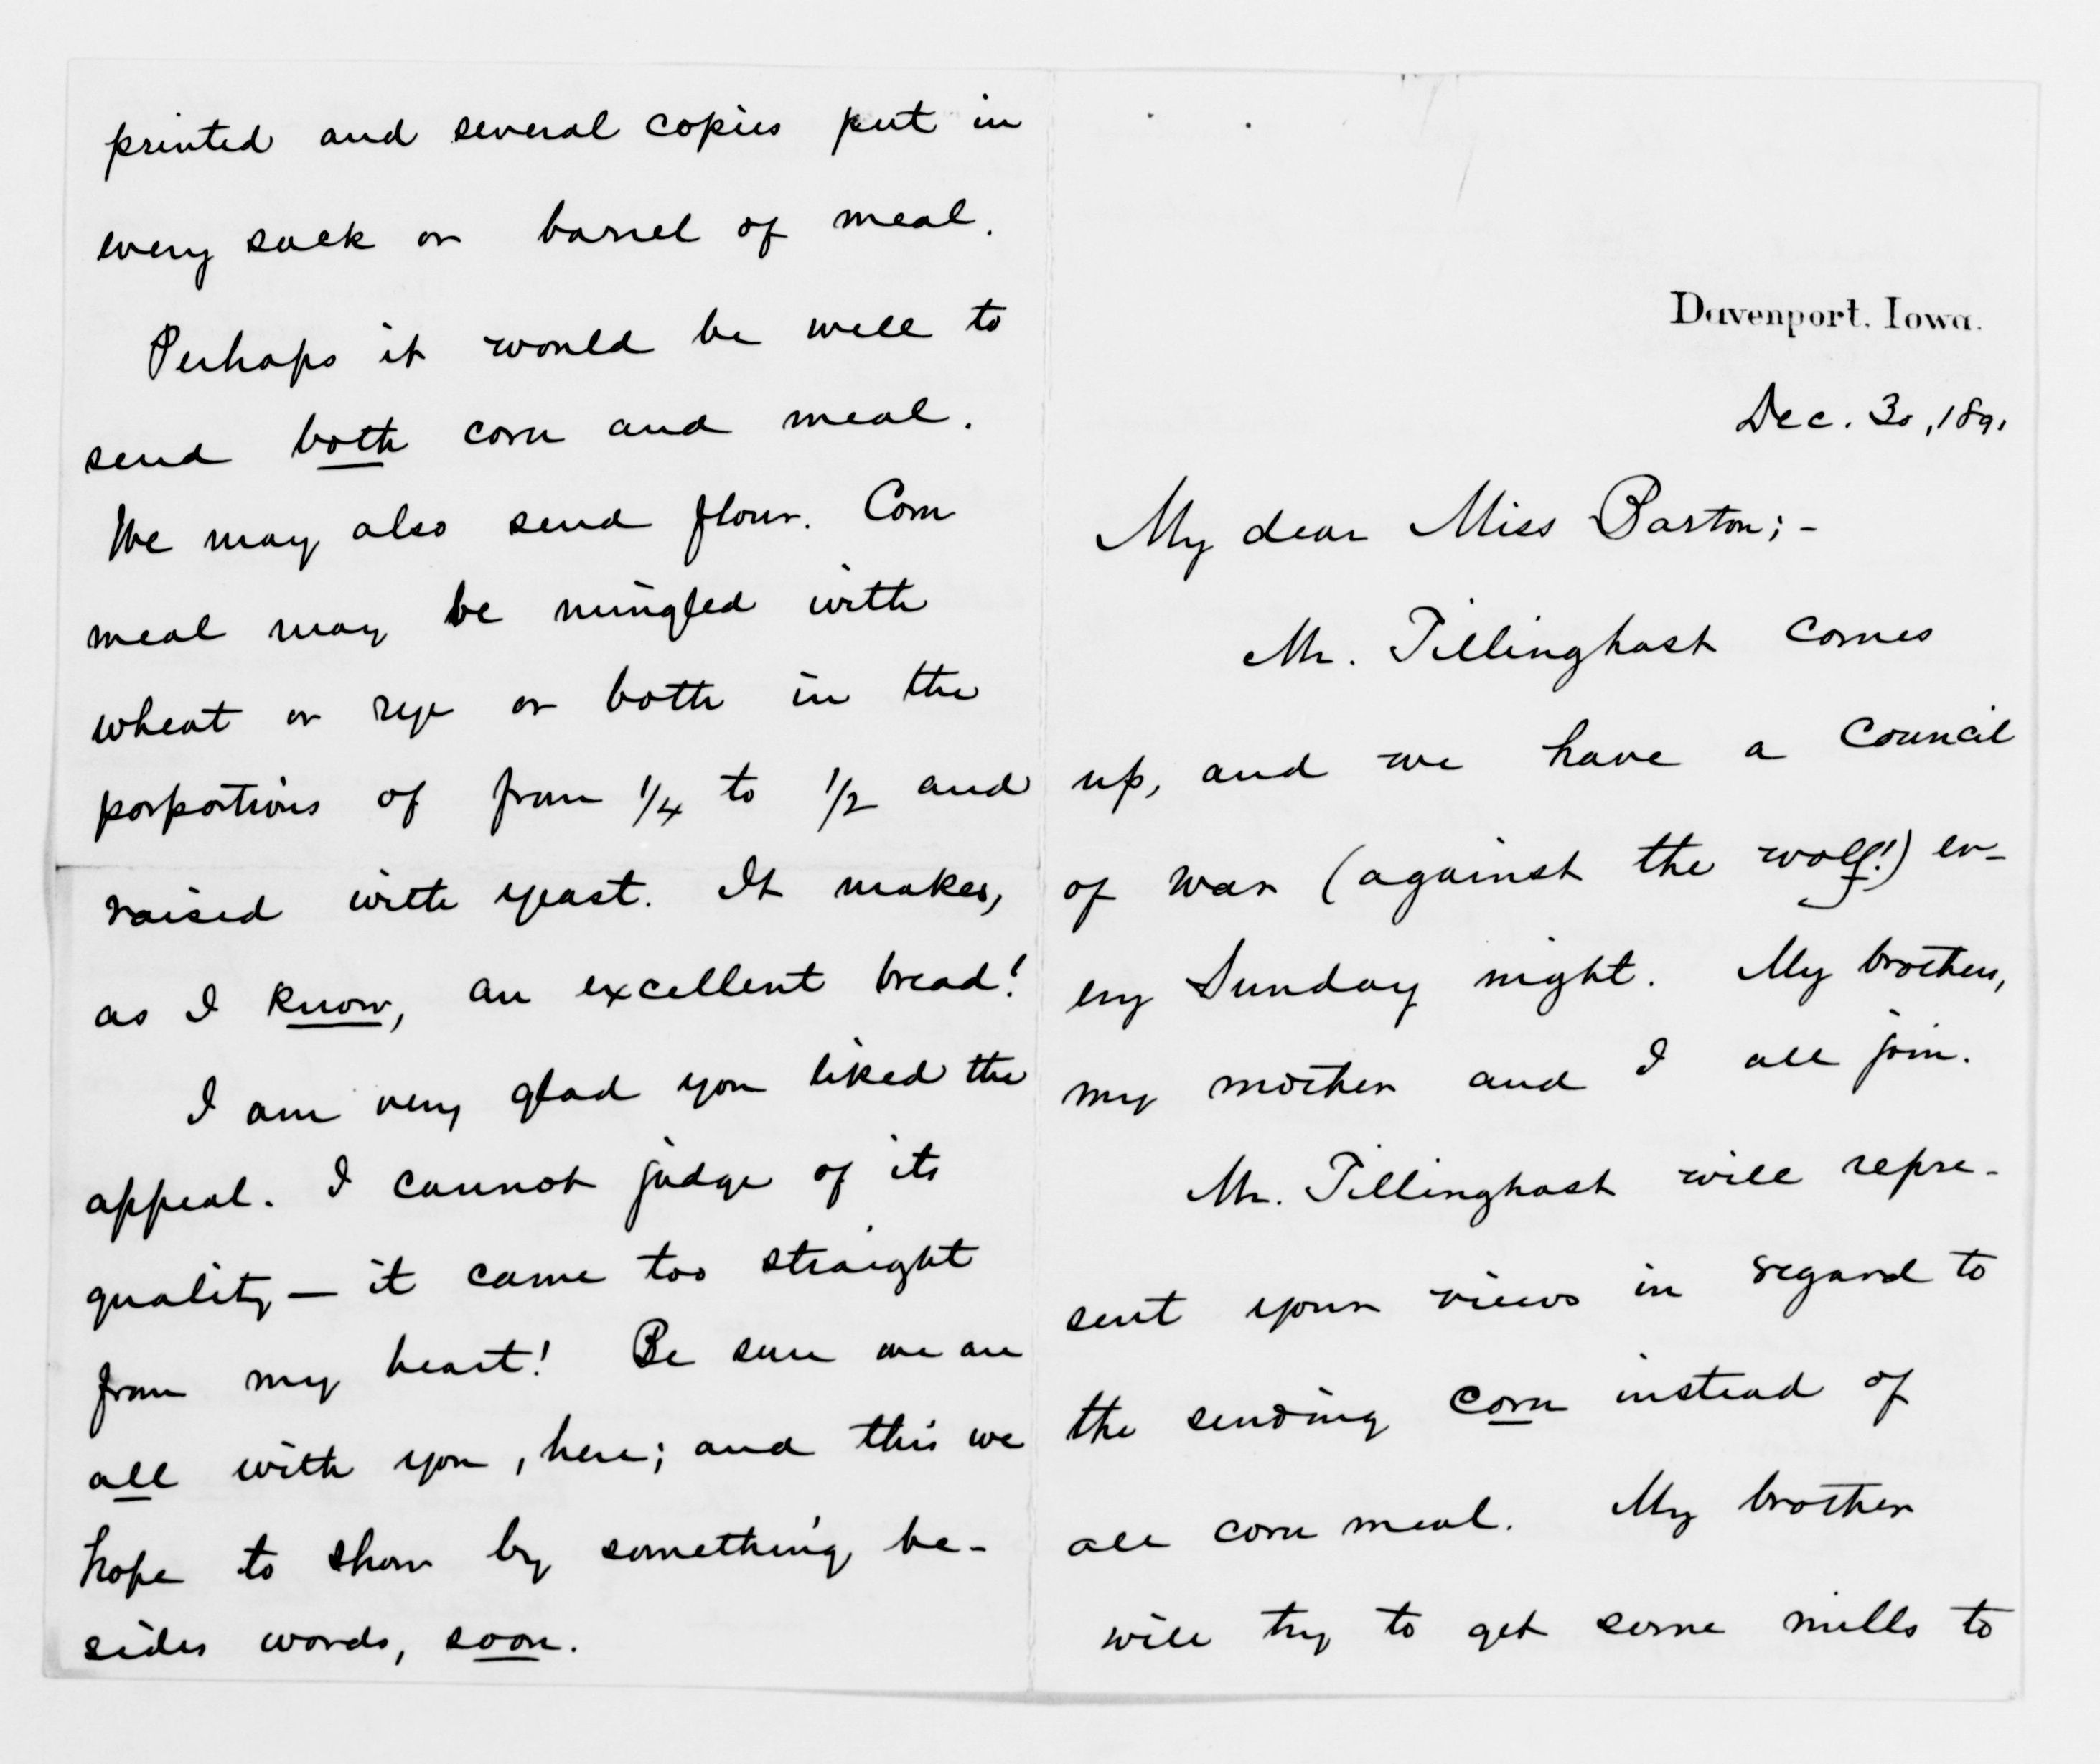 Davenport, Iowa.
Dec. 30, 1891
My dear Miss Barton; -
Mr. Tillinghast comes
up, and we have a council
of war (against the wolf!) ev-
ery Sunday night. My brothers,
my mother and I all join.
Mr. Tillinghast will repre-
sent your views in regard to
the sending corn instead of
all corn meal. My brother
will try to get some mills to
printed and several copies put in
every sack or barrel of meal.
Perhaps it would be well to
send both corn and meal.
We may also send flour. Corn
meal may be mingled with
wheat or rye or both in the
porportions of from 1/4 to 1/2 and
raised with yeast. It makes,
as I know, an excellent bread!
I am very glad you liked the
appeal. I cannot judge of its
quality — it came too straight
from my heart! Be sure we are
all with you, here; and this we
hope to show by something be-
sides words, soon.